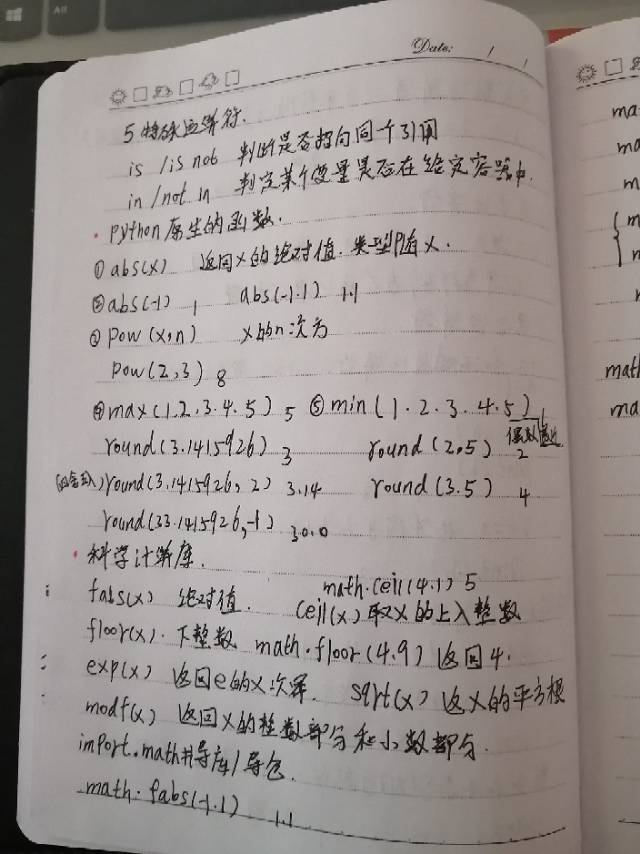 Alt
Date: / /
5 特殊运算符.
is / is not 判断是否指向同一个引用
in / not in 判定某个变量是否在给定容器中.
· python 原生的函数.
① abs(x) 返回x的绝对值. 类型随x.
② abs(-1) 1 abs(-1.1) 1.1
③ pow (x,n) x的n次方
pow(2,3) 8
④ max(1.2.3.4.5) 5 ⑤ min(1.2.3.4.5) 1
round(3.1415926) 3 round(2.5) 2
(四舍五入) round(3.1415926, 2) 3.14 round(3.5) 4
round(33.1415926,-1) 30.0
· 科学计算库.
fabs(x) 绝对值. math.ceil(4.1) 5
ceil(x) 取x的上入整数
floor(x). 下整数 math.floor(4.9) 返回4.
exp(x) 返回e的x次幂. sqrt(x) 返x的平方根
modf(x) 返回x的整数部分和小数部分.
import.math #导库/导包.
math.fabs(-1.1) 1.1
ma
ma
m
{ m
math
ma